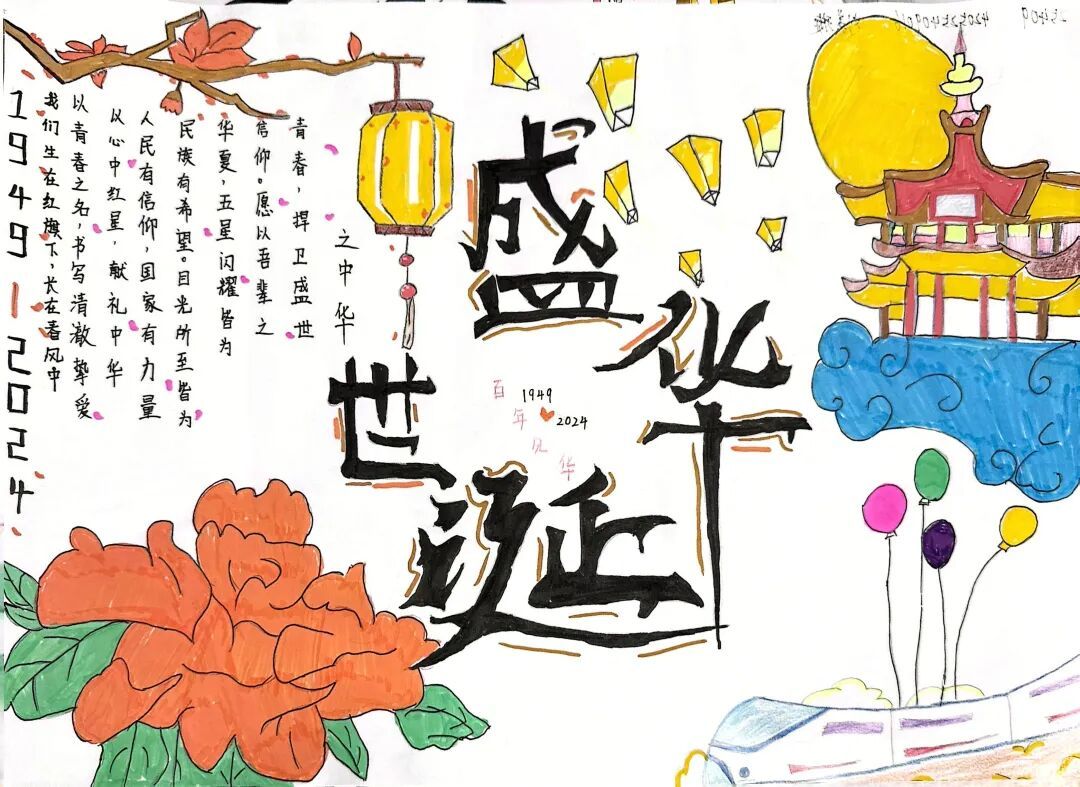 1949-2024
我们生在红旗下,长在春风中
以青春之名,书写清澈挚爱
以心中红星,献礼中华
人民有信仰,国家有力量
民族有希望。目光所至皆为
华夏,五星闪耀皆为
信仰。愿以吾辈之
青春,捍卫盛世
之中华
盛世华诞
百年华
1949
2024